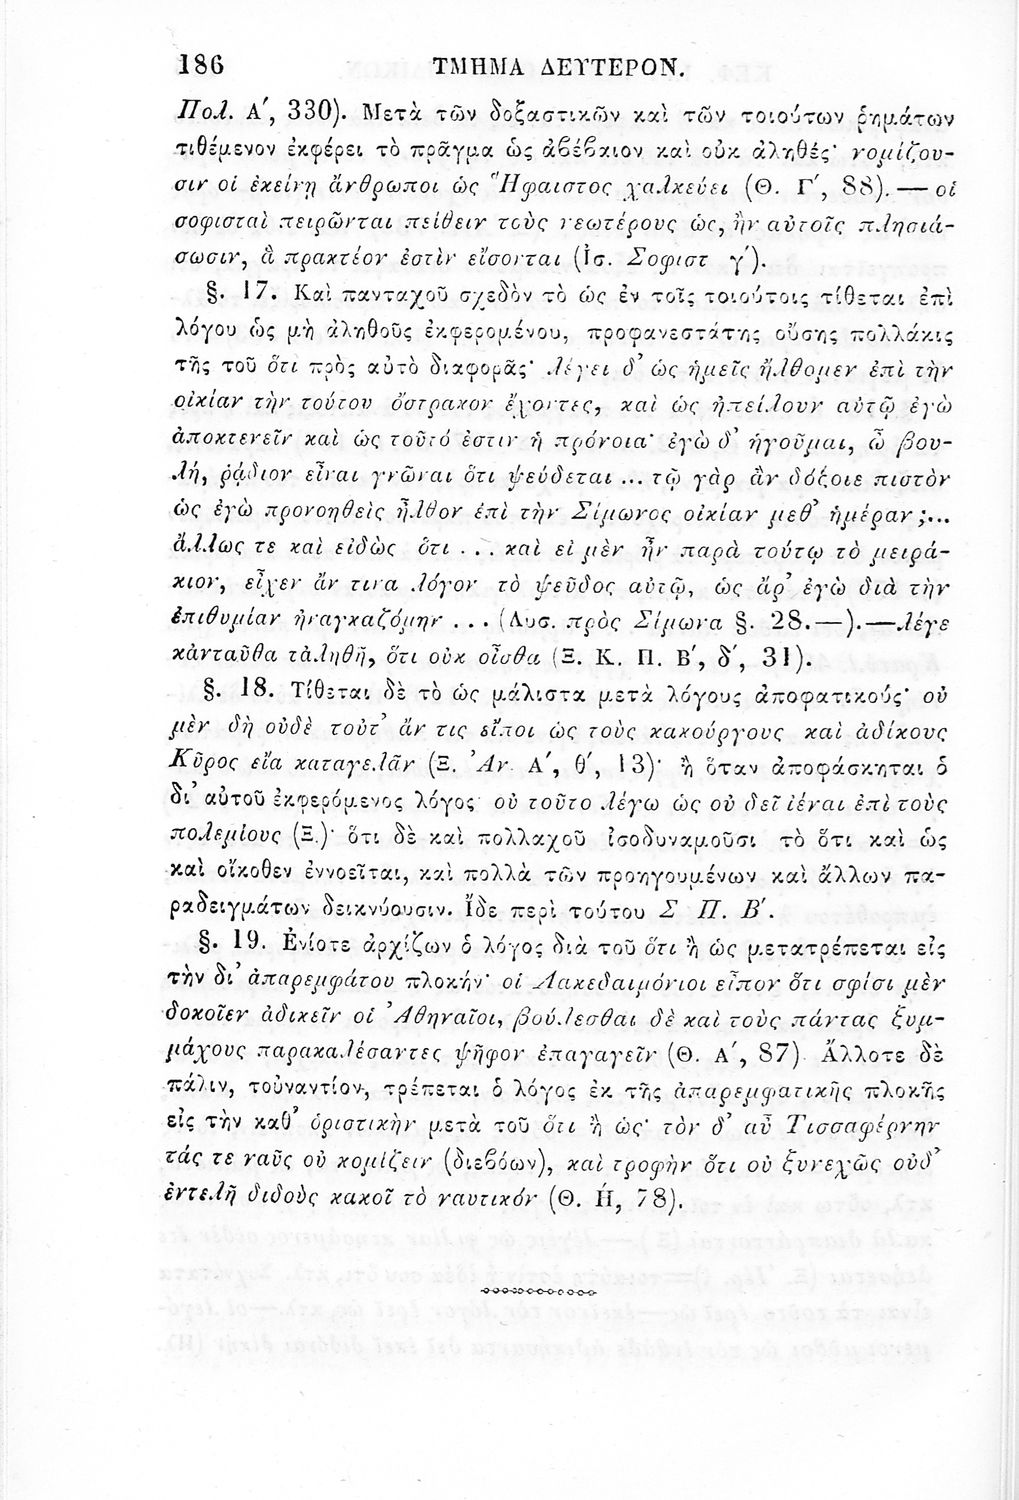 186 ΤΜΗΜΑ ΔΕΥΤΕΡΟΝ.
Πολ. Α΄, 330). Μετὰ τῶν δοξαστικῶν καὶ τῶν τοιούτων ῥημάτων
τιθέμενον ἐκφέρει τὸ πρᾶγμα ὡς ἀβέβαιον καὶ οὐκ ἀληθές· νομίζου-
σιν οἱ ἐκείνῃ ἄνθρωποι ὡς Ἥφαιστος χαλκεύει (Θ. Γ΄, 88).— οἱ
σοφισταὶ πειρῶνται πείθειν τοὺς νεωτέρους ὡς, ἢν αὐτοῖς πλησιά-
σωσιν, ἃ πρακτέον ἐστὶν εἴσονται (Ἰσ. Σοφιστ γ΄).
§. 17. Καὶ πανταχοῦ σχεδὸν τὸ ὡς ἐν τοῖς τοιούτοις τίθεται ἐπὶ
λόγου ὡς μὴ ἀληθοῦς ἐκφερομένου, προφανεστάτης οὔσης πολλάκις
τῆς τοῦ ὅτι πρὸς αὐτὸ διαφορᾶς· λέγει δ’ ὡς ἡμεῖς ἤλθομεν ἐπὶ τὴν
οἰκίαν τὴν τούτου ὄστρακον ἔχοντες, καὶ ὡς ἠπείλουν αὐτῷ ἐγὼ
ἀποκτενεῖν καὶ ὡς τοῦτό ἐστιν ἡ πρόνοια· ἐγὼ δ’ ἡγοῦμαι, ὦ βου-
λή, ῥᾴδιον εἶναι γνῶναι ὅτι ψεύδεται ... τῷ γὰρ ἂν δόξοιε πιστὸν
ὡς ἐγὼ προνοηθεὶς ἦλθον ἐπὶ τὴν Σίμωνος οἰκίαν μεθ’ ἡμέραν ;...
ἄλλως τε καὶ εἰδὼς ὅτι ... καὶ εἰ μὲν ἦν παρὰ τούτῳ τὸ μειρά-
κιον, εἶχεν ἄν τινα λόγον τὸ ψεῦδος αὐτῷ, ὡς ἄρ’ ἐγὼ διὰ τὴν
ἐπιθυμίαν ἠναγκαζόμην ... (Λυσ. πρὸς Σίμωνα §. 28.—).—λέγε
κἀνταῦθα τἀληθῆ, ὅτι οὐκ οἶσθα (Ξ. Κ. Π. Β΄, δ΄, 31).
§. 18. Τίθεται δὲ τὸ ὡς μάλιστα μετὰ λόγους ἀποφατικούς· οὐ
μὲν δὴ οὐδὲ τοῦτ’ ἄν τις εἴποι ὡς τοὺς κακούργους καὶ ἀδίκους
Κῦρος εἴα καταγελᾶν (Ξ. Ἀν. Α΄, θ΄, 13)· ἢ ὅταν ἀποφάσκηται ὁ
δι’ αὐτοῦ ἐκφερόμενος λόγος· οὐ τοῦτο λέγω ὡς οὐ δεῖ ἰέναι ἐπὶ τοὺς
πολεμίους (Ξ.)· ὅτι δὲ καὶ πολλαχοῦ ἰσοδυναμοῦσι τὸ ὅτι καὶ ὡς
καὶ οἴκοθεν ἐννοεῖται, καὶ πολλὰ τῶν προηγουμένων καὶ ἄλλων πα-
ραδειγμάτων δεικνύουσιν. Ἴδε περὶ τούτου Σ Π. Β΄.
§. 19. Ἐνίοτε ἀρχίζων ὁ λόγος διὰ τοῦ ὅτι ἢ ὡς μετατρέπεται εἰς
τὴν δι’ ἀπαρεμφάτου πλοκήν· οἱ Λακεδαιμόνιοι εἶπον ὅτι σφίσι μὲν
δοκοῖεν ἀδικεῖν οἱ Ἀθηναῖοι, βούλεσθαι δὲ καὶ τοὺς πάντας ξυμ-
μάχους παρακαλέσαντες ψῆφον ἐπαγαγεῖν (Θ. Α΄, 87). Ἄλλοτε δὲ
πάλιν, τοὐναντίον, τρέπεται ὁ λόγος ἐκ τῆς ἀπαρεμφατικῆς πλοκῆς
εἰς τὴν καθ’ ὁριστικὴν μετὰ τοῦ ὅτι ἢ ὡς· τὸν δ’ αὖ Τισσαφέρνην
τάς τε ναῦς οὐ κομίζειν (διεβόων), καὶ τροφὴν ὅτι οὐ ξυνεχῶς οὐδ’
ἐντελῆ διδοὺς κακοῖ τὸ ναυτικόν (Θ. Ἡ, 78).